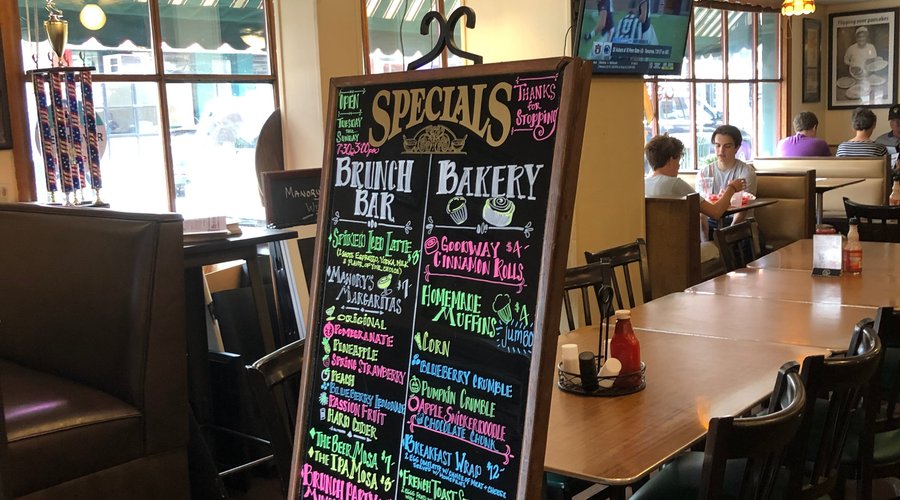 SPECIALS
OPEN
TUESDAY
THRU
SUNDAY
7:30-3:00pm
THANKS
FOR
STOPPING
BRUNCH
BAR
SPIKED ICED LATTE
MANORY'S $7
MARGARITAS
ORIGINAL
POMEGRANATE
PINEAPPLE
SPRING STRAWBERRY
PEACH
BLUEBERRY LEMONADE
PASSION FRUIT
HARD CIDER
THE BEER MOSA $7
THE IPA MOSA $8
BRUNCH PARTY
BAKERY
GOOKWAY $4
CINNAMON ROLLS
HOMEMADE $4
MUFFINS JUMBO
CORN
BLUEBERRY CRUMBLE
PUMPKIN CRUMBLE
APPLE SNICKERDOODLE
CHOCOLATE CHUNK
BREAKFAST WRAP $12
FRENCH TOAST
MANORY'S
Flipping over pancakes